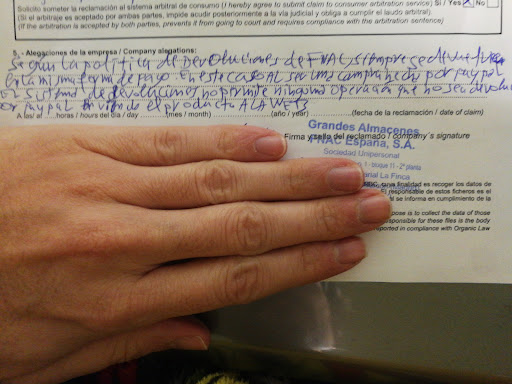 Solicito someter la reclamación al sistema arbitral de consumo (I hereby agree to submit claim to consumer arbitration service) Sí / Yes No
(Si el arbitraje es aceptado por ambas partes, impide acudir posteriormente a la vía judicial y obliga a cumplir el laudo arbitral).
(If the arbitration is accepted by both parties, prevents it from going to court and requires compliance with the arbitration sentence)
5.- Alegaciones de la empresa / Company alegations:
Según la política de Devoluciones de FNAC, siempre se devuelve
en la misma forma de pago. En este caso al ser una compra hecha por paypal
el sistema de devoluciones no permite ninguna operación que no sea devolver
por paypal enviando el producto A LA WEB
A las/ at horas / hours del día / day (mes / month) (año / year) (fecha de la reclamación / date of claim)
Firma y sello del reclamado / company´s signature
Grandes Almacenes
FNAC España, S.A.
Sociedad Unipersonal
1 - bloque 11 - 2ª planta
La Finca
finalidad es recoger los datos de
responsable de estos ficheros es el
se informa en cumplimiento de la
pose is to collect the data of those
sponsible for these files is the body
reported in compliance with Organic Law